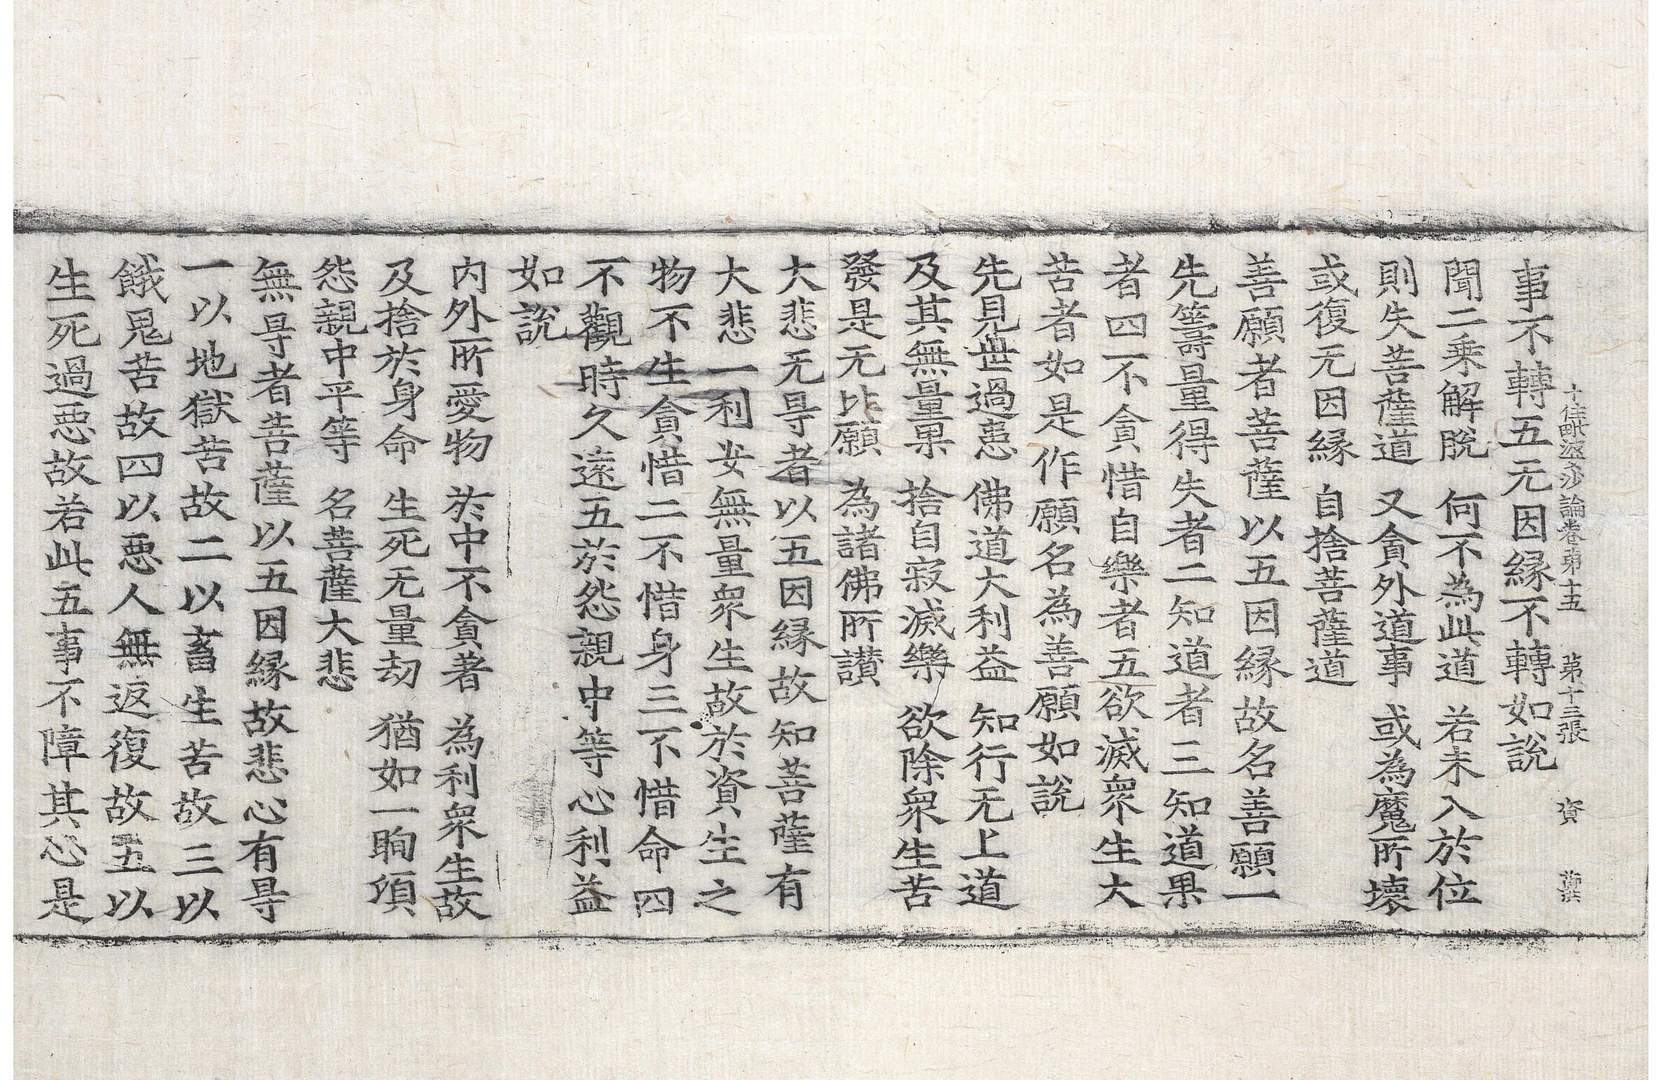 十住毗婆沙論卷第十五　第十三張　資
事不轉五无因緣不轉如說
聞二乘解脫　何不為此道　若未入於位
則失菩薩道　又貪外道事　或為魔所壞
或復无因緣　自捨菩薩道
善願者菩薩以五因緣故名善願一
先籌量得失者二知道者三知道果
者四不貪惜自樂者五欲滅衆生大
苦者如是作願名為善願如說
先見世過患　佛道大利益　知行无上道
及其無量果　捨自寂滅樂　欲除衆生苦
發是无比願　為諸佛所讃
大悲无㝵者以五因緣故知菩薩有
大悲一利安無量衆生故於資生之
物不生貪惜二不惜身三不惜命四
不觀時久遠五於怨親中等心利益
如說
內外所愛物　於中不貪著　為利衆生故
及捨於身命　生死无量劫　猶如一眴項
怨親中平等　名菩薩大悲
無㝵者菩薩以五因緣故悲心有㝵
一以地獄苦故二以畜生苦故三以
餓鬼苦故四以惡人無返復故五以
生死過惡故若此五事不障其心是